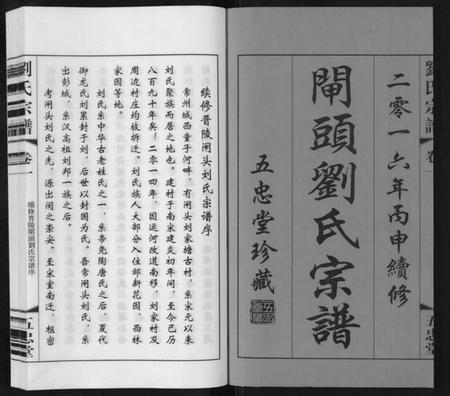 劉氏宗譜
卷一
五忠堂
二零一六年丙申續修
閘頭劉氏宗譜
五忠堂珍藏
续修晋陵闸头刘氏宗谱序
常州城西童子河畔，有闸头刘家塘古村，系宋元以来
刘氏聚族而居之地也。建村于南宋建炎初年间，至今已历
八百九十年矣！二零一四年，因运河改道南移，刘家村及
周边村庄均被拆迁。刘氏族人大部分入住邹新花园、西林
家园等地。
刘氏系中华古老姓氏之一，系帝尧陶唐氏之后，夏代
御龙氏刘累封于刘，后世以封国为氏。吾常闸头刘氏，系
出彭城，系汉高祖刘邦一族之后。
考闸头刘氏之先，源出闸之崇安。至宋室南迁，祖密
劉氏宗譜
卷一
續修晋陵閘頭劉氏宗譜序
五忠堂